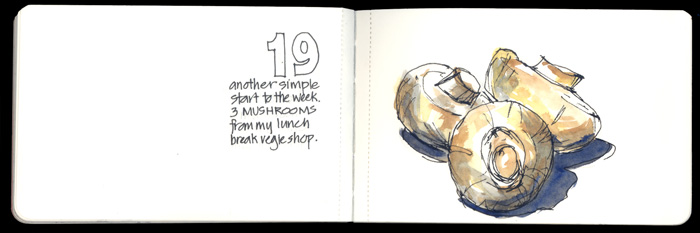 19
another simple
start to the week.
3 MUSHROOMS
from my lunch
break vegie shop.